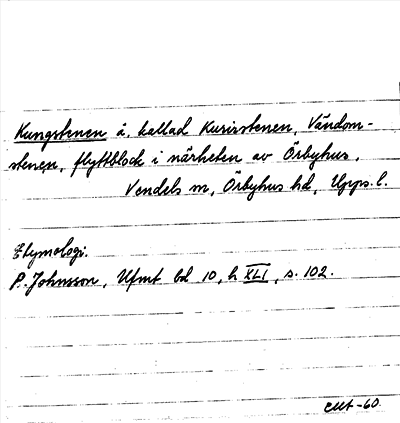 Kungstenen å, kallad Kurirstenen, Vändom-
stenen, flyttblock i närheten av Örbyhus,
Vendels sn, Örbyhus hd, Upps. l.
Etymologi.
P. Johnsson, Ufmt bd 10, h XLI, s. 102.
-60